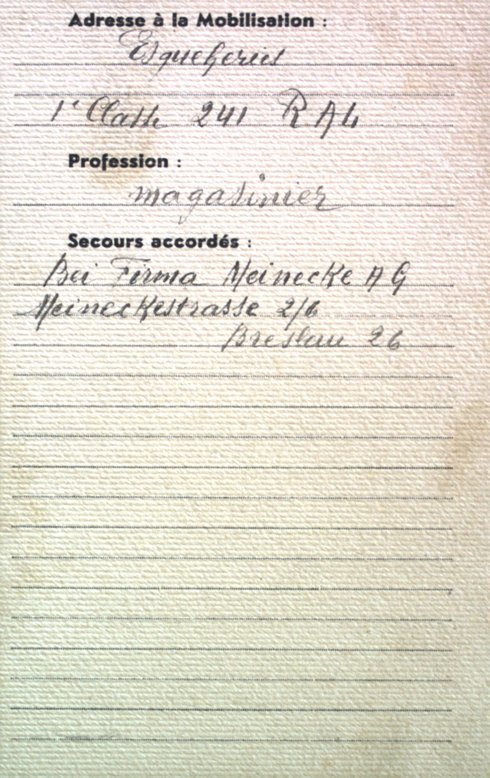 Adresse à la Mobilisation :
Esqueheries
1e Classe 241 R A L
Profession :
magasinier
Secours accordés :
Bei Firma Meinecke A G
Meineckestrasse 2/6
Breslau 26